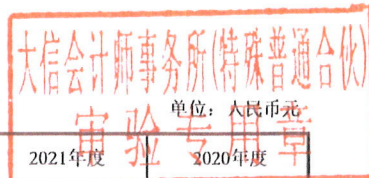 大信会计师事务所(特殊普通合伙)
单位：人民币元
审验专用章
2021年度 2020年度